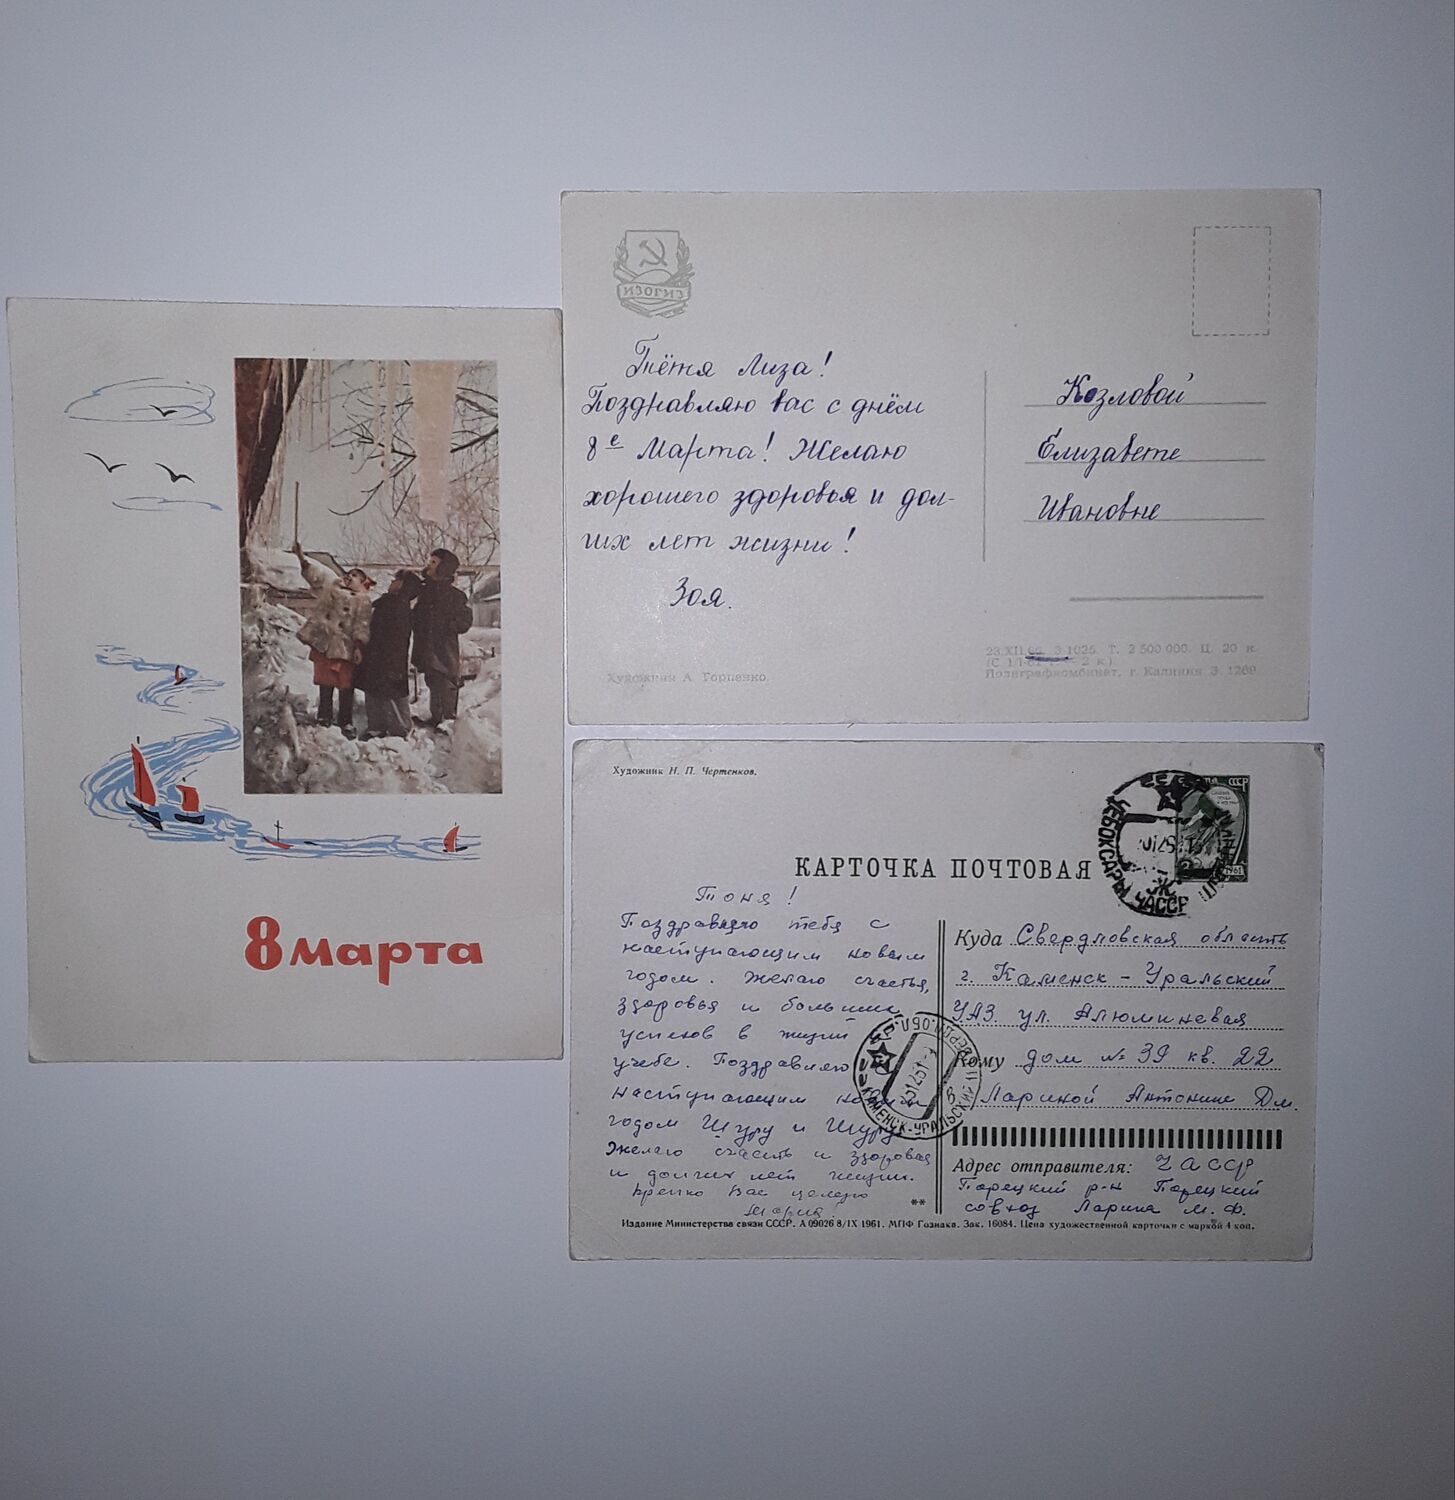 8 марта
ИЗОГИЗ
Тётя Лиза!
Поздравляю вас с днём
8е Марта! Желаю
хорошего здоровья и дол-
гих лет жизни!
Зоя.
Козловой
Елизавете
Ивановне
Художник А. Горпенко.
23.XII. З. 1025. Т. 2 500 000. Ц. 20 к.
2 к.)
Полиграфкомбинат, г. Калинин З. 1269
Художник Н. П. Чертенков.
СССР
1961
ЧЕБОКСАРЫ ЧАССР
КАРТОЧКА ПОЧТОВАЯ
Тоня!
Поздравляю тебя с
наступающим новым
годом. Желаю счастья,
здоровья и больших
успехов в жизни
учебе. Поздравляю
наступающим новым
годом Шуру и Шуру
Желаю счасть и здоровья
и долгих лет жизни.
Крепко Вас целую
Мария.
КАМЕНСК-УРАЛЬСКИЙ СВЕРДЛ.ОБЛ.
Куда Свердловская область
г. Каменск - Уральский
УАЗ. ул. Алюминевая
Кому дом № 39 кв. 22
Лариной Антонине Дм.
Адрес отправителя: ЧАССР
Порецкий р-н Порецкий
совхоз Ларина М. Ф.
**
Издание Министерства связи СССР. А 09026 8/IX 1961. МПФ Гознака. Зак. 16084. Цена художественной карточки с маркой 4 коп.